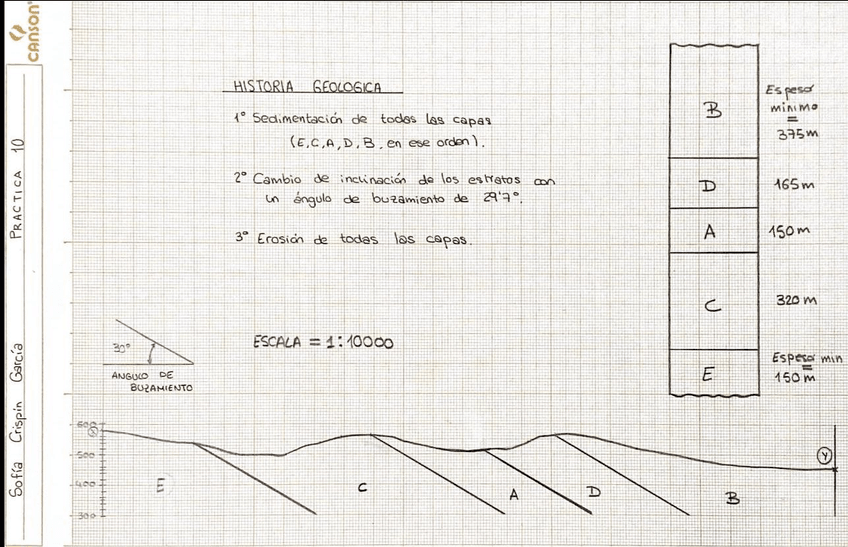 CANSON
PRACTICA 10
Sofía Crispín García
HISTORIA GEOLOGICA
1º Sedimentación de todas las capas
(E,C,A,D,B, en ese orden).
2º Cambio de inclinación de los estratos con
un ángulo de buzamiento de 29'7º.
3º Erosión de todas las capas.
30º
ANGULO DE
BUZAMIENTO
ESCALA = 1:10000
B
Espesor
mínimo
=
375m
D
165m
A
150m
C
320m
E
Espesor min
=
150m
600
500
400
300
X
E
C
A
D
B
Y